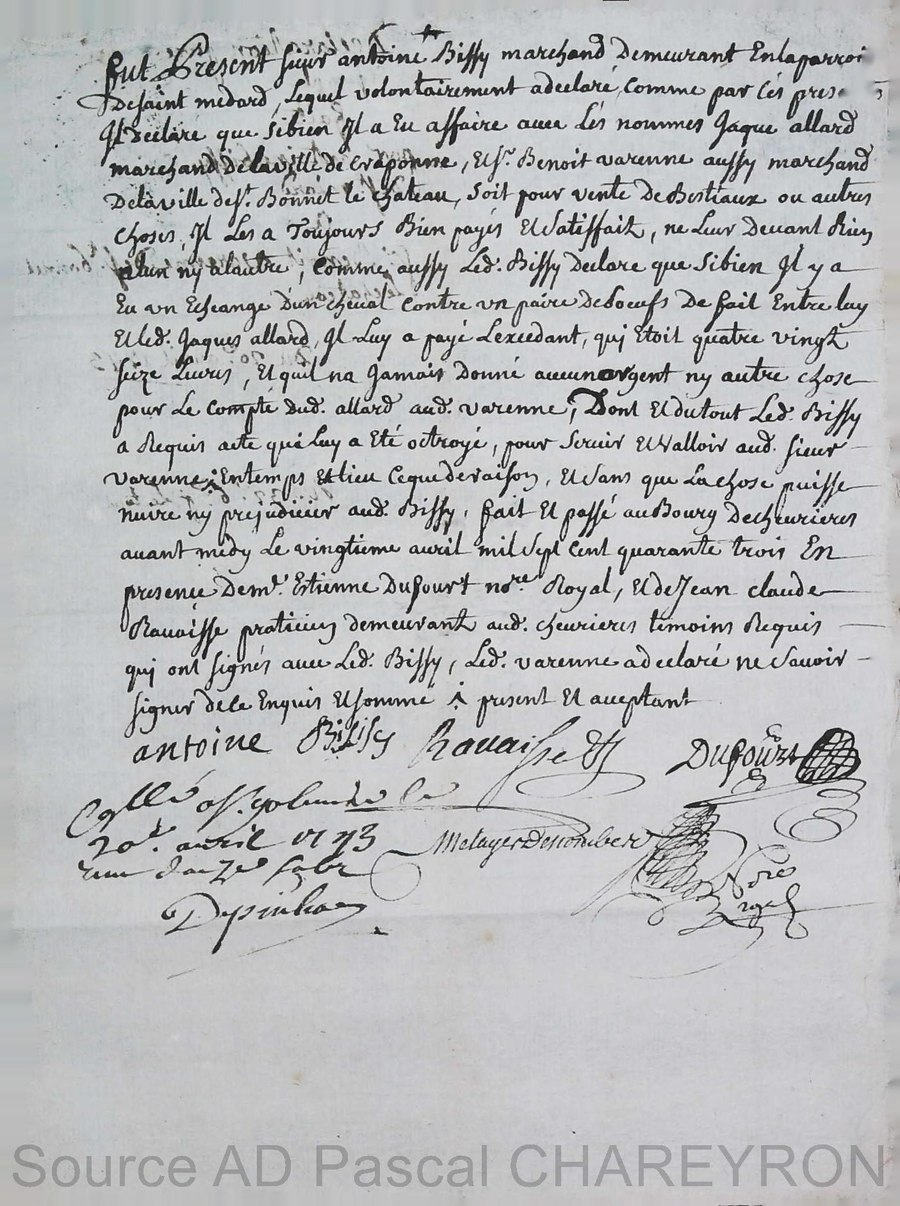 fut Present sieur antoine Bissy marchand Demeurant En la parroi
De saint medard, Lequel volontairement a declaré, Comme par Cés prese
Il Declare que sibien Il a Eu affaire avec Lés nommés Jaque allard
marchand de la ville de Craponne, Et sr. Benoit varenne aussy marchand
De la ville de st. Bonnet le chateau, soit pour vente de Bestiaux ou autres
choses, Il Les a Toujours Bien payés Et satisfait, ne Leur Devant Rien
a lun ny a lautre, Comme aussy Led. Bissy Declare que sibien Il y a
Eu un Echange D'un cheval Contre un paire de Boeufs De fait Entre luy
Et led. Jaques allard, Il Luy a payé L'excedant, qui Etoit quatre vingt
seize Livres, Et quil na Jamais Donné aucun argent ny autre chose
pour Le Compte dud. allard aud. varenne, Dont Et du tout Led. Bissy
a Requis acte que Luy a Eté octroyé, pour servir Et valloir aud. sieur
varenne, En temps Et lieu Ce que de raison, Et sans que La chose puisse
nuire ny prejudicier aud. Bissy, fait Et passé au Bourg De chevrieres
avant midy Le vingtieme avril mil sept Cent quarante trois En
presence De me. Estienne Dufourt nore. Royal, Et de Jean claude
Ravaisse praticien demeurant aud. chevrieres temoins Requis
qui ont signés avec Led. Bissy, Led. varenne a declaré ne savoir
signer de ce Enquis Et sommé + present Et acceptant
antoine Bissy Ravaisse Dufourt
Collé
20e. avril 1743
Metayer Descombes
Nore
Royal
Source AD Pascal CHAREYRON